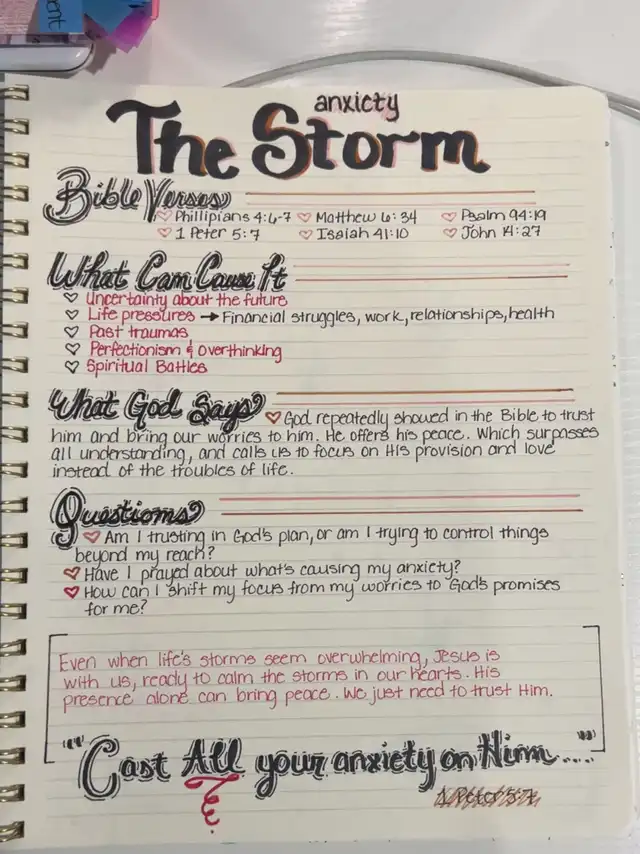 ent
anxiety
The Storm
Bible Verses
Phillipians 4:6-7 Matthew 6:34 Psalm 94:19
1 Peter 5:7 Isaiah 41:10 John 14:27
What Can Cause It
Uncertainty about the future
Life pressures → Financial struggles, work, relationships, health
Past traumas
Perfectionism & overthinking
Spiritual Battles
What God Says God repeatedly showed in the Bible to trust
him and bring our worries to him. He offers his peace. Which surpasses
all understanding, and calls us to focus on His provision and love
instead of the troubles of life.
Questions
Am I trusting in God's plan, or am I trying to control things
beyond my reach?
Have I prayed about what's causing my anxiety?
How can I shift my focus from my worries to God's promises
for me?
Even when life's storms seem overwhelming, Jesus is
with us, ready to calm the storms in our hearts. His
presence alone can bring peace. We just need to trust Him.
"Cast All your anxiety on Him...."
1 Peter 5:7